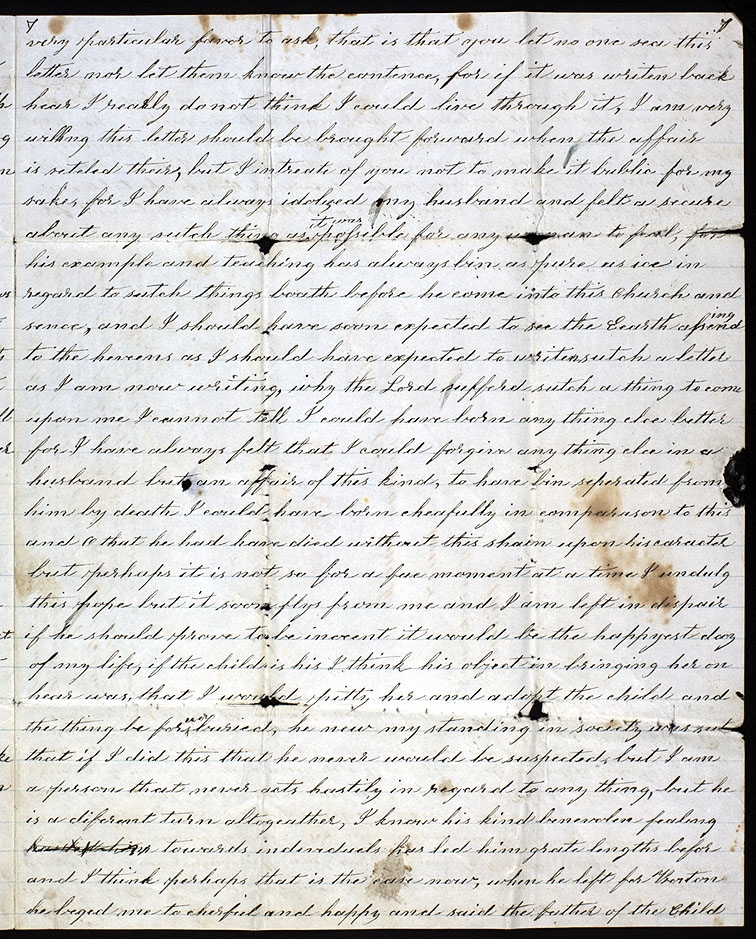 7 7
very particular favor to ask, that is that you let no one sea this
letter nor let them know the contence, for if it was writen back
hear I really do not think I could live through it, I am very
willing this letter should be brought forward when the affair
is setled their, but I intreate of you not to make it bublic for my
sake, for I have always idolized my husband and felt a secure
about any sutch thing as it was possible for any woman to feal, for
his example and teaching has always bin as pure as ice in
regard to sutch things boath before he come into this Church and
sence, and I should have soon expected to see the Eearth assending
to the hevens as I should have expected to writen sutch a letter
as I am now writing, why the Lord sufferd sutch a thing to come
upon me I cannot tell I could have born any thing else better
for I have always felt that I could forgive any thing else in a
husband but an affair of this kind, to have bin seperated from
him by death I could have born cheafully in comparuson to this
and O that he had have died without this shain upon his caracter
but perhaps it is not so for a fue moment at a time I undulg
this hope but it soon flys from me and I am left in dispair
if he should prove to be inocent it would be the happyest day
of my life, if the child is his I think his object in bringing her on
hear was, that I would pitty her and adopt the child and
the thing be for ever buried, he new my standing in society was sut
that if I did this that he never would be suspected, but I am
a person that never acts hastily in regard to any thing, but he
is a diferent turn altogeather, I know his kind benevolen fealing
towards individuels has led him grate lengths befor
and I think perhaps that is the case now, when he left for Boston
he beged me to cherful and happy and said the father of the Child